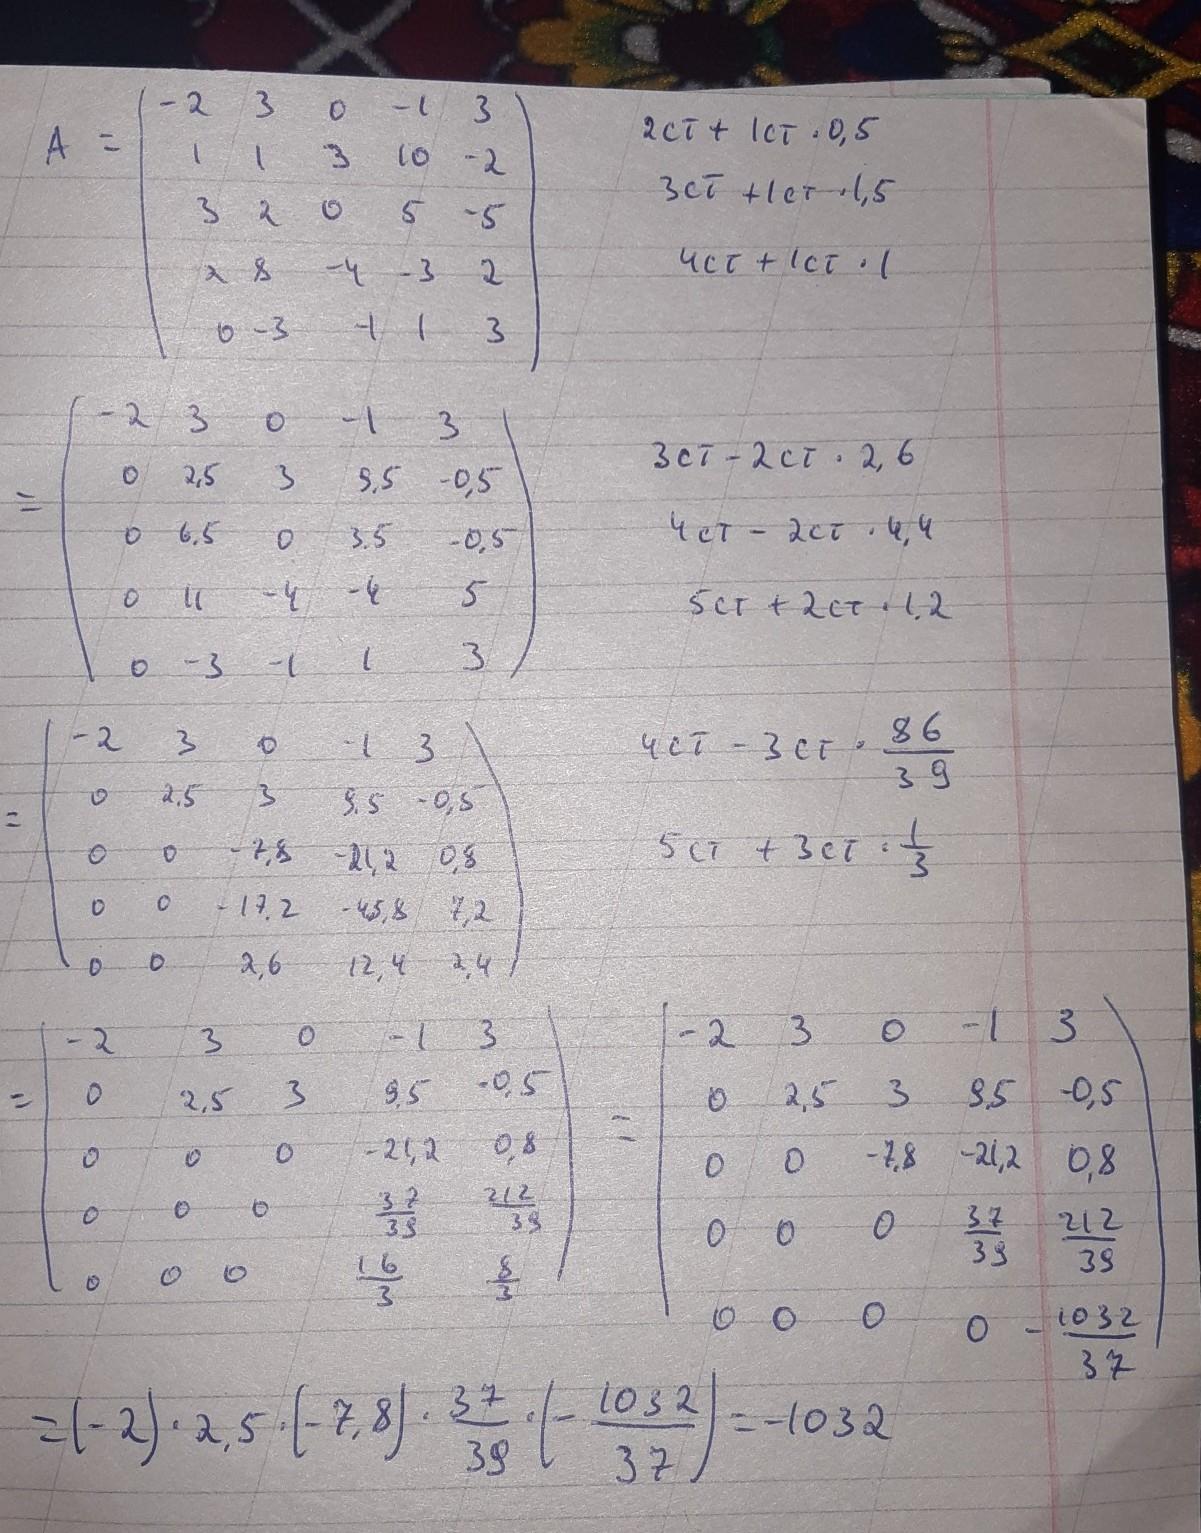 A = ( -2 3 0 -1 3 ) 2ст + 1ст · 0,5
1 1 3 10 -2 3ст + 1ст · 1,5
3 2 0 5 -5
2 8 -4 -3 2 4ст + 1ст · 1
0 -3 -1 1 3
-2 3 0 -1 3
0 2,5 3 9,5 -0,5 3ст - 2ст · 2,6
= 0 6,5 0 3,5 -0,5 4ст - 2ст · 4,4
0 11 -4 -4 5 5ст + 2ст · 1,2
0 -3 -1 1 3
-2 3 0 -1 3 4ст - 3ст · 86/39
= 0 2,5 3 9,5 -0,5
0 0 -7,8 -21,2 0,8 5ст + 3ст · 1/3
0 0 -17,2 -45,8 7,2
0 0 2,6 12,4 2,4
-2 3 0 -1 3
= 0 2,5 3 9,5 -0,5
0 0 0 -21,2 0,8
0 0 0 37/39 212/39
0 0 0 16/3 8/3
-2 3 0 -1 3
= 0 2,5 3 9,5 -0,5
0 0 -7,8 -21,2 0,8
0 0 0 37/39 212/39
0 0 0 0 -1032/37
= (-2) · 2,5 · (-7,8) · 37/39 · (- 1032/37) = -1032